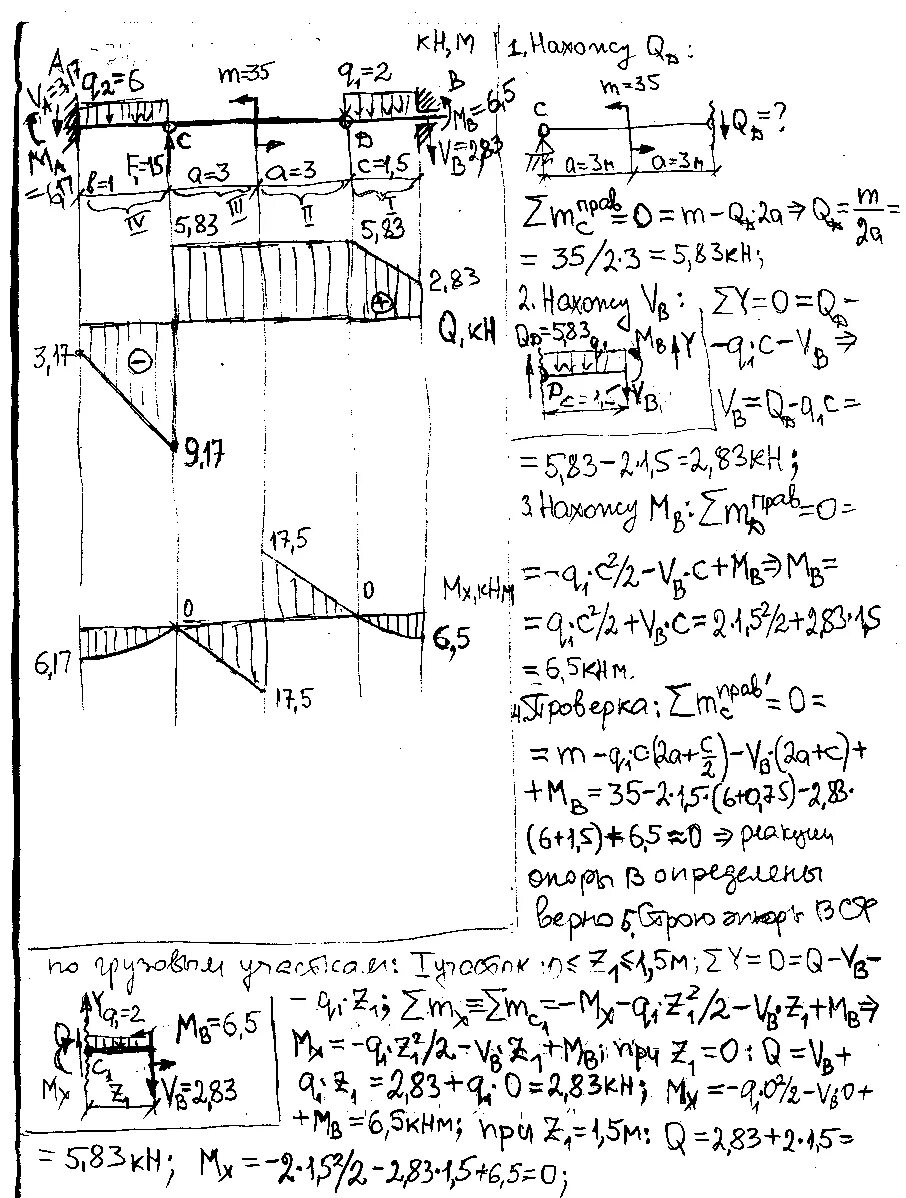 кН, м
A
V_A=3,17
q₂=6
m=35
q₁=2
B
M_B=6,5
M_A
=6,17
F=15
C
D
V_B=2,83
b=1
a=3
a=3
c=1,5
IV
III
II
I
5,83
5,83
2,83
+
Q, кН
3,17
−
9,17
17,5
0
0
Mx, кНм
6,17
6,5
17,5
1. Нахожу Q_D:
m=35
C
Q_D=?
a=3м
a=3м
Σm_C^прав=0=m−Q_D·2a⇒Q_D=m/2a=
=35/2·3=5,83кН;
2. Нахожу V_B: ΣY=0=Q_D−
Q_D=5,83
q₁
M_B
Y
−q₁·c−V_B⇒
D
c=1,5
V_B
V_B=Q_D−q₁c=
=5,83−2·1,5=2,83кН;
3. Нахожу M_B: Σm_D^прав=0=
=−q₁·c²/2−V_B·c+M_B⇒M_B=
=q₁·c²/2+V_B·c=2·1,5²/2+2,83·1,5
=6,5кНм.
4. Проверка: Σm_C^прав=0=
=m−q₁·c(2a+c/2)−V_B·(2a+c)+
+M_B=35−2·1,5·(6+0,75)−2,83·
(6+1,5)+6,5≈0⇒реакции
опоры В определены
верно 5. Строю эпюры ВСФ
по грузовым участкам: I участок: 0≤Z₁≤1,5м; ΣY=0=Q−V_B−
−q₁·Z₁; Σmx≡Σm_C₁=−Mx−q₁·Z₁²/2−V_B·Z₁+M_B⇒
Y
q₁=2
M_B=6,5
Q
C₁
Mx
Z₁
V_B=2,83
Mx=−q₁·Z₁²/2−V_B·Z₁+M_B; при Z₁=0: Q=V_B+
q₁·Z₁=2,83+q₁·0=2,83кН; Mx=−q₁·0²/2−V_B·0+
+M_B=6,5кНм; при Z₁=1,5м: Q=2,83+2·1,5=
=5,83кН; Mx=−2·1,5²/2−2,83·1,5+6,5=0;